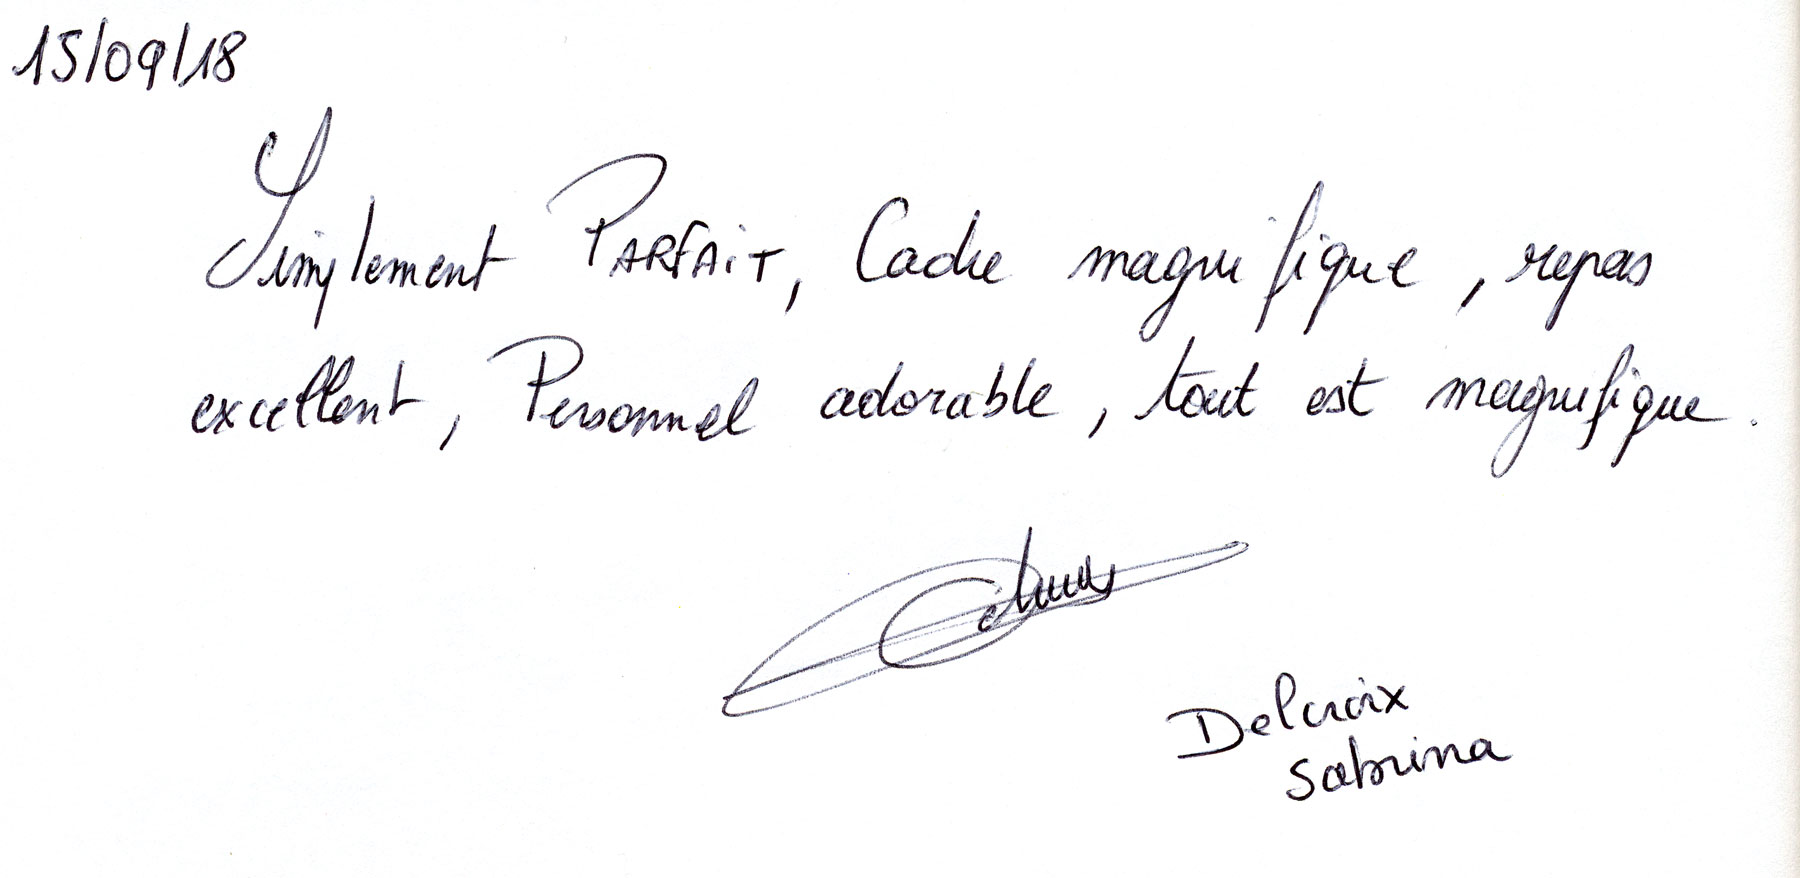 15/09/18
Simplement PARFAiT, Cadre magnifique, repas
excellent, Personnel adorable, tout est magnifique.
Delcroix
Sabrina